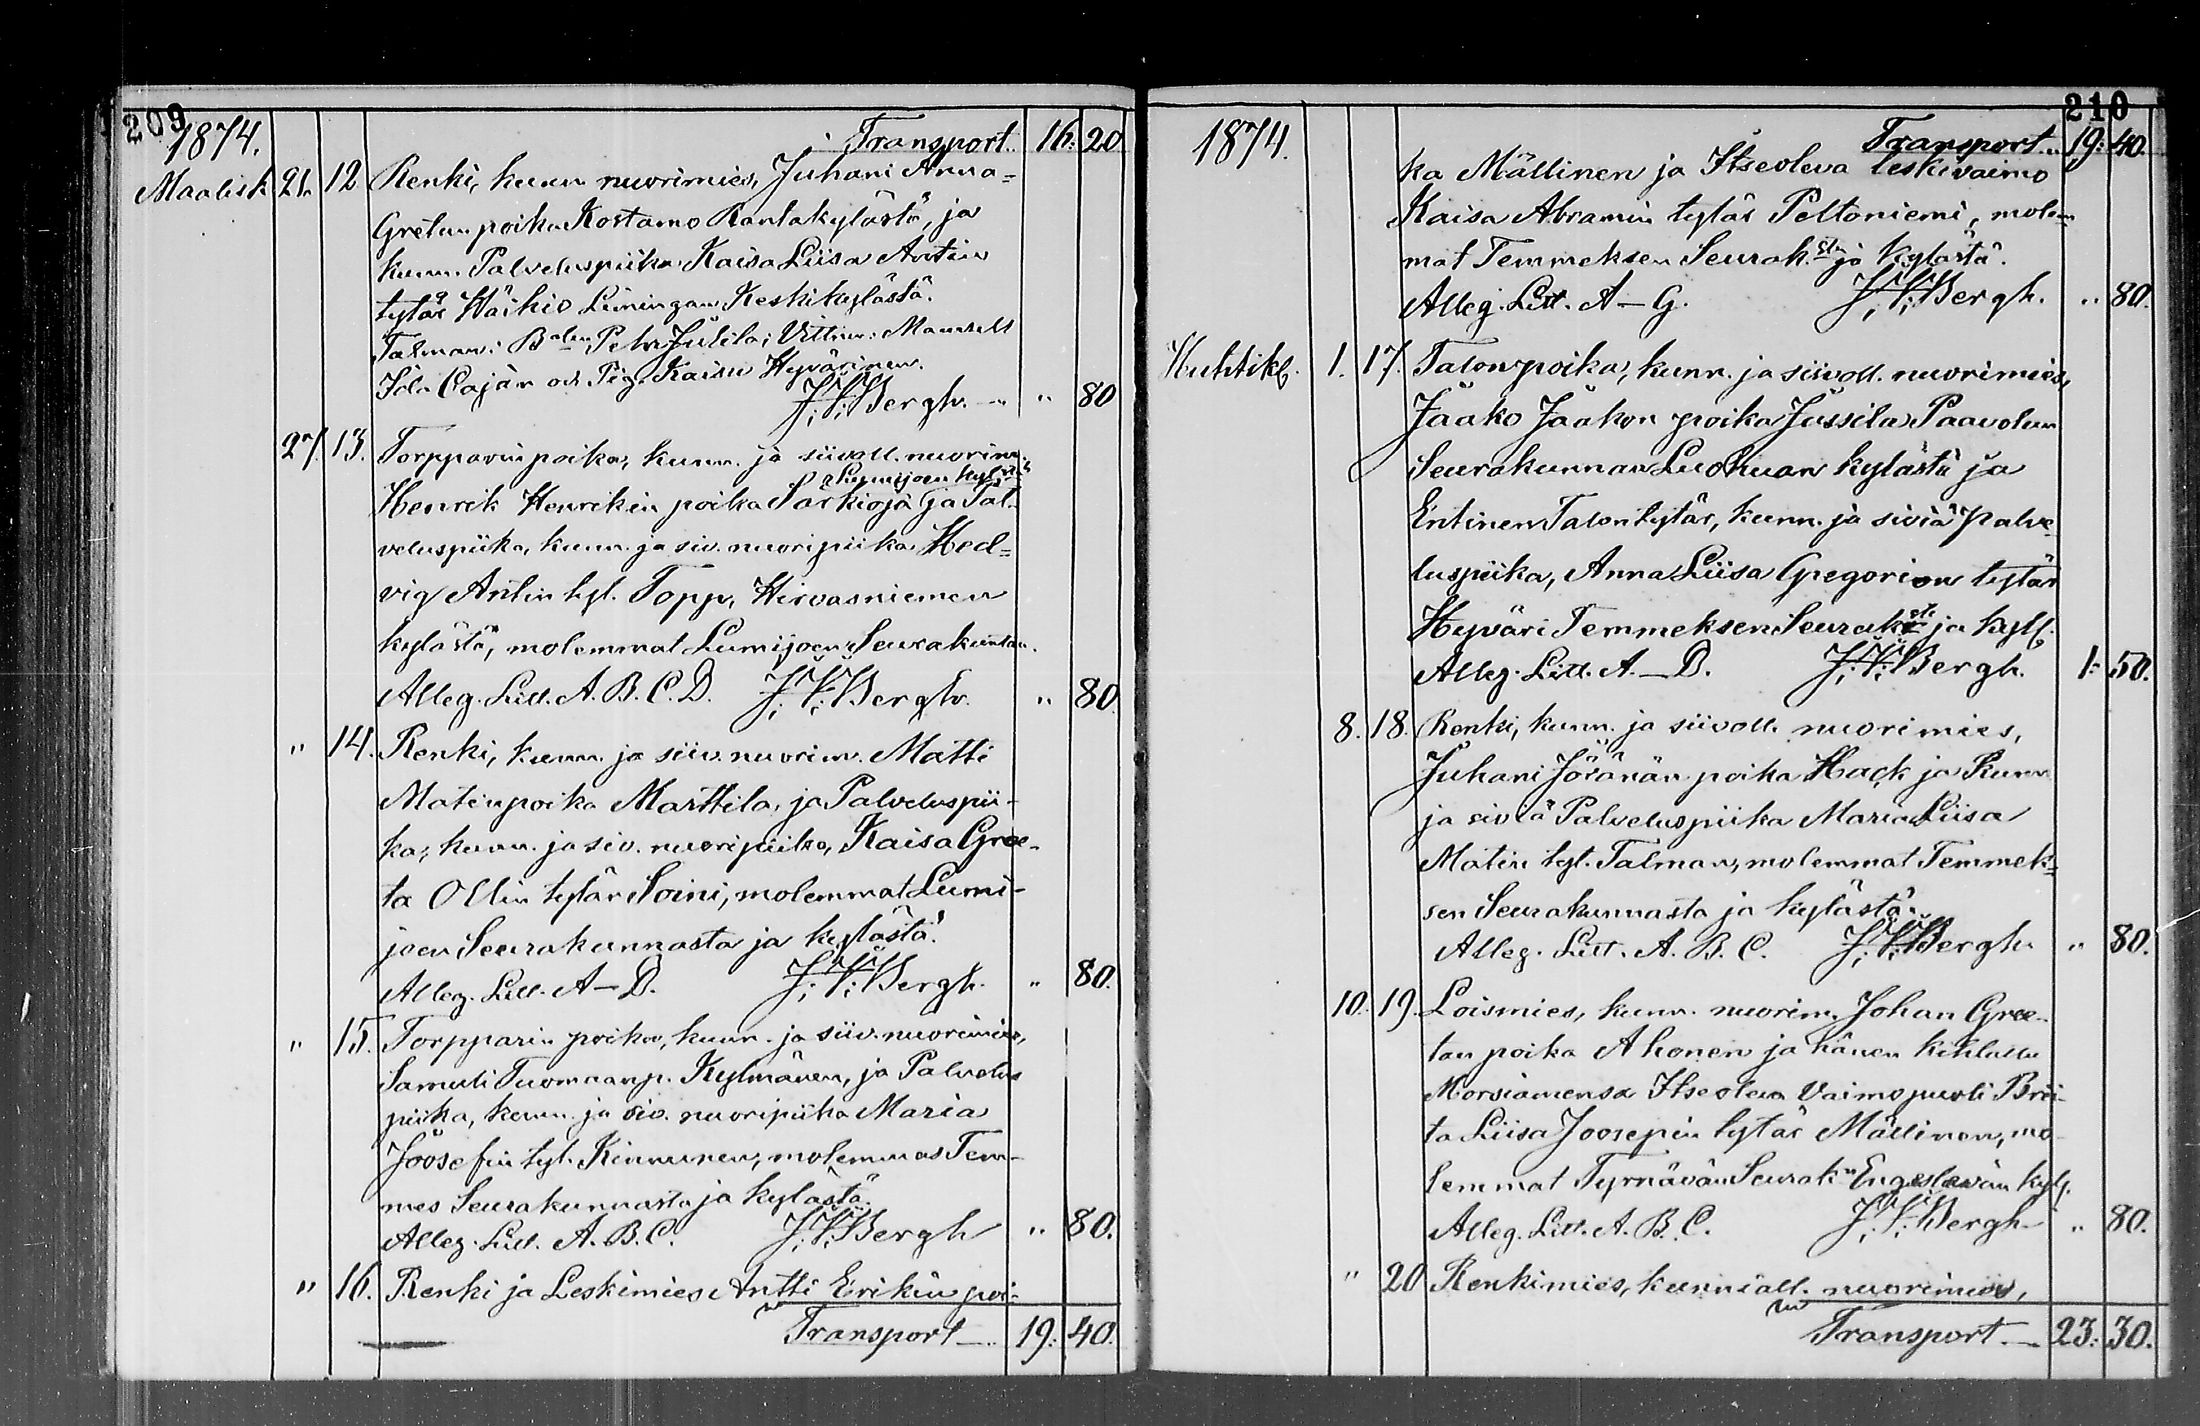 209
1874.
Transport. 16: 20
Maalisk 21. 12 Renki, kunn nuorimies, Juhani Anna=
Gretan poika Kostamo Rantakylästä, ja
kunn. Palveluspiika Kaisa Liisa Antin
tytär Häikiö Limingan Keskikylästä.
Talman: Petr Julila; Vittnen: Mamsell
Ida Cajan och Pig. Kaisu Hyvärinen.
J: V: Bergh. " 80
27. 13. Torpparin poika, kunn. ja siivoll. nuorim.
Lumijoen kyl.
Henrik Henrikin poika Särkioja ja Pal-
veluspiika, kunn. ja siv. nuoripiika Hed=
vig Antin tyt. Topp, Hirvasniemen
kylästä, molemmat Lumijoen Seurakuntaa.
Alleg. Litt. A. B. C. D. J: V: Bergh. " 80.
" 14. Renki, kunn. ja siiv. nuorim. Matti
Matinpoika Marttila, ja Palveluspii-
ka, kunn. ja siv. nuoripiika, Kaisa Gree-
ta Ollin tytär Soini, molemmat Lumi-
joen Seurakunnasta ja kylästä.
Alleg. Litt. A—D. J: V: Bergh. " 80.
" 15. Torpparin poika, kunn. ja siiv. nuorimies,
Samuli Tuomaanp. Kylmänen, ja Palvelus
piika, kunn. ja siv. nuoripiika Maria
Joosefin tyt. Kinnunen, molemmat Tem-
mes Seurakunnasta ja kylästä.
Alleg. Litt. A. B. C. J: V: Bergh " 80.
" 16. Renki ja Leskimies Antti Erikin poi-
Transport — 19: 40.
210
1874.
Transport.. 19: 40.
ka Mällinen ja Itseoleva leskivaimo
Kaisa Abramin tytär Peltoniemi, molem
mat Temmeksen Seurak.sta ja kylästä.
Alleg. Litt. A—G. J: V: Bergh. " 80.
Huhtik. 1. 17. Talonpoika, kunn. ja siivoll. nuorimies,
Jaako Jaakon poika Jussila Paavolan
Seurakunnan Luohuan kylästä ja
Entinen Talon tytär, kunn. ja siviä Palve
luspiika, Anna Liisa Gregorion tytär
Hyväri Temmeksen Seurak.sta ja kyl.
Alleg. Litt. A.—D. J: V: Bergh. 1: 50.
8. 18. Renki, kunn. ja siivoll. nuorimies,
Juhani Jöränän poika Hack ja Kunn
ja siviä Palveluspiika Maria Liisa
Matin tyt. Talman, molemmat Temmek=
sen Seurakunnasta ja kylästä.
Alleg. Litt. A. B. C. J: V: Bergh " 80.
10. 19. Loismies, kunn. nuorim. Johan Gree-
tan poika Ahonen ja hänen kihlattu
Morsiamensa Itseoleva Vaimopuoli Brii-
ta Liisa Joosepin tytär Mällinen, mo-
lemmat Tyrnävän Seurak.n Engeslevän kyl.
Alleg. Litt. A. B. C. J: V: Bergh " 80.
" 20 Renkimies, kunniall. nuorimies,
Transport. — 23: 30.